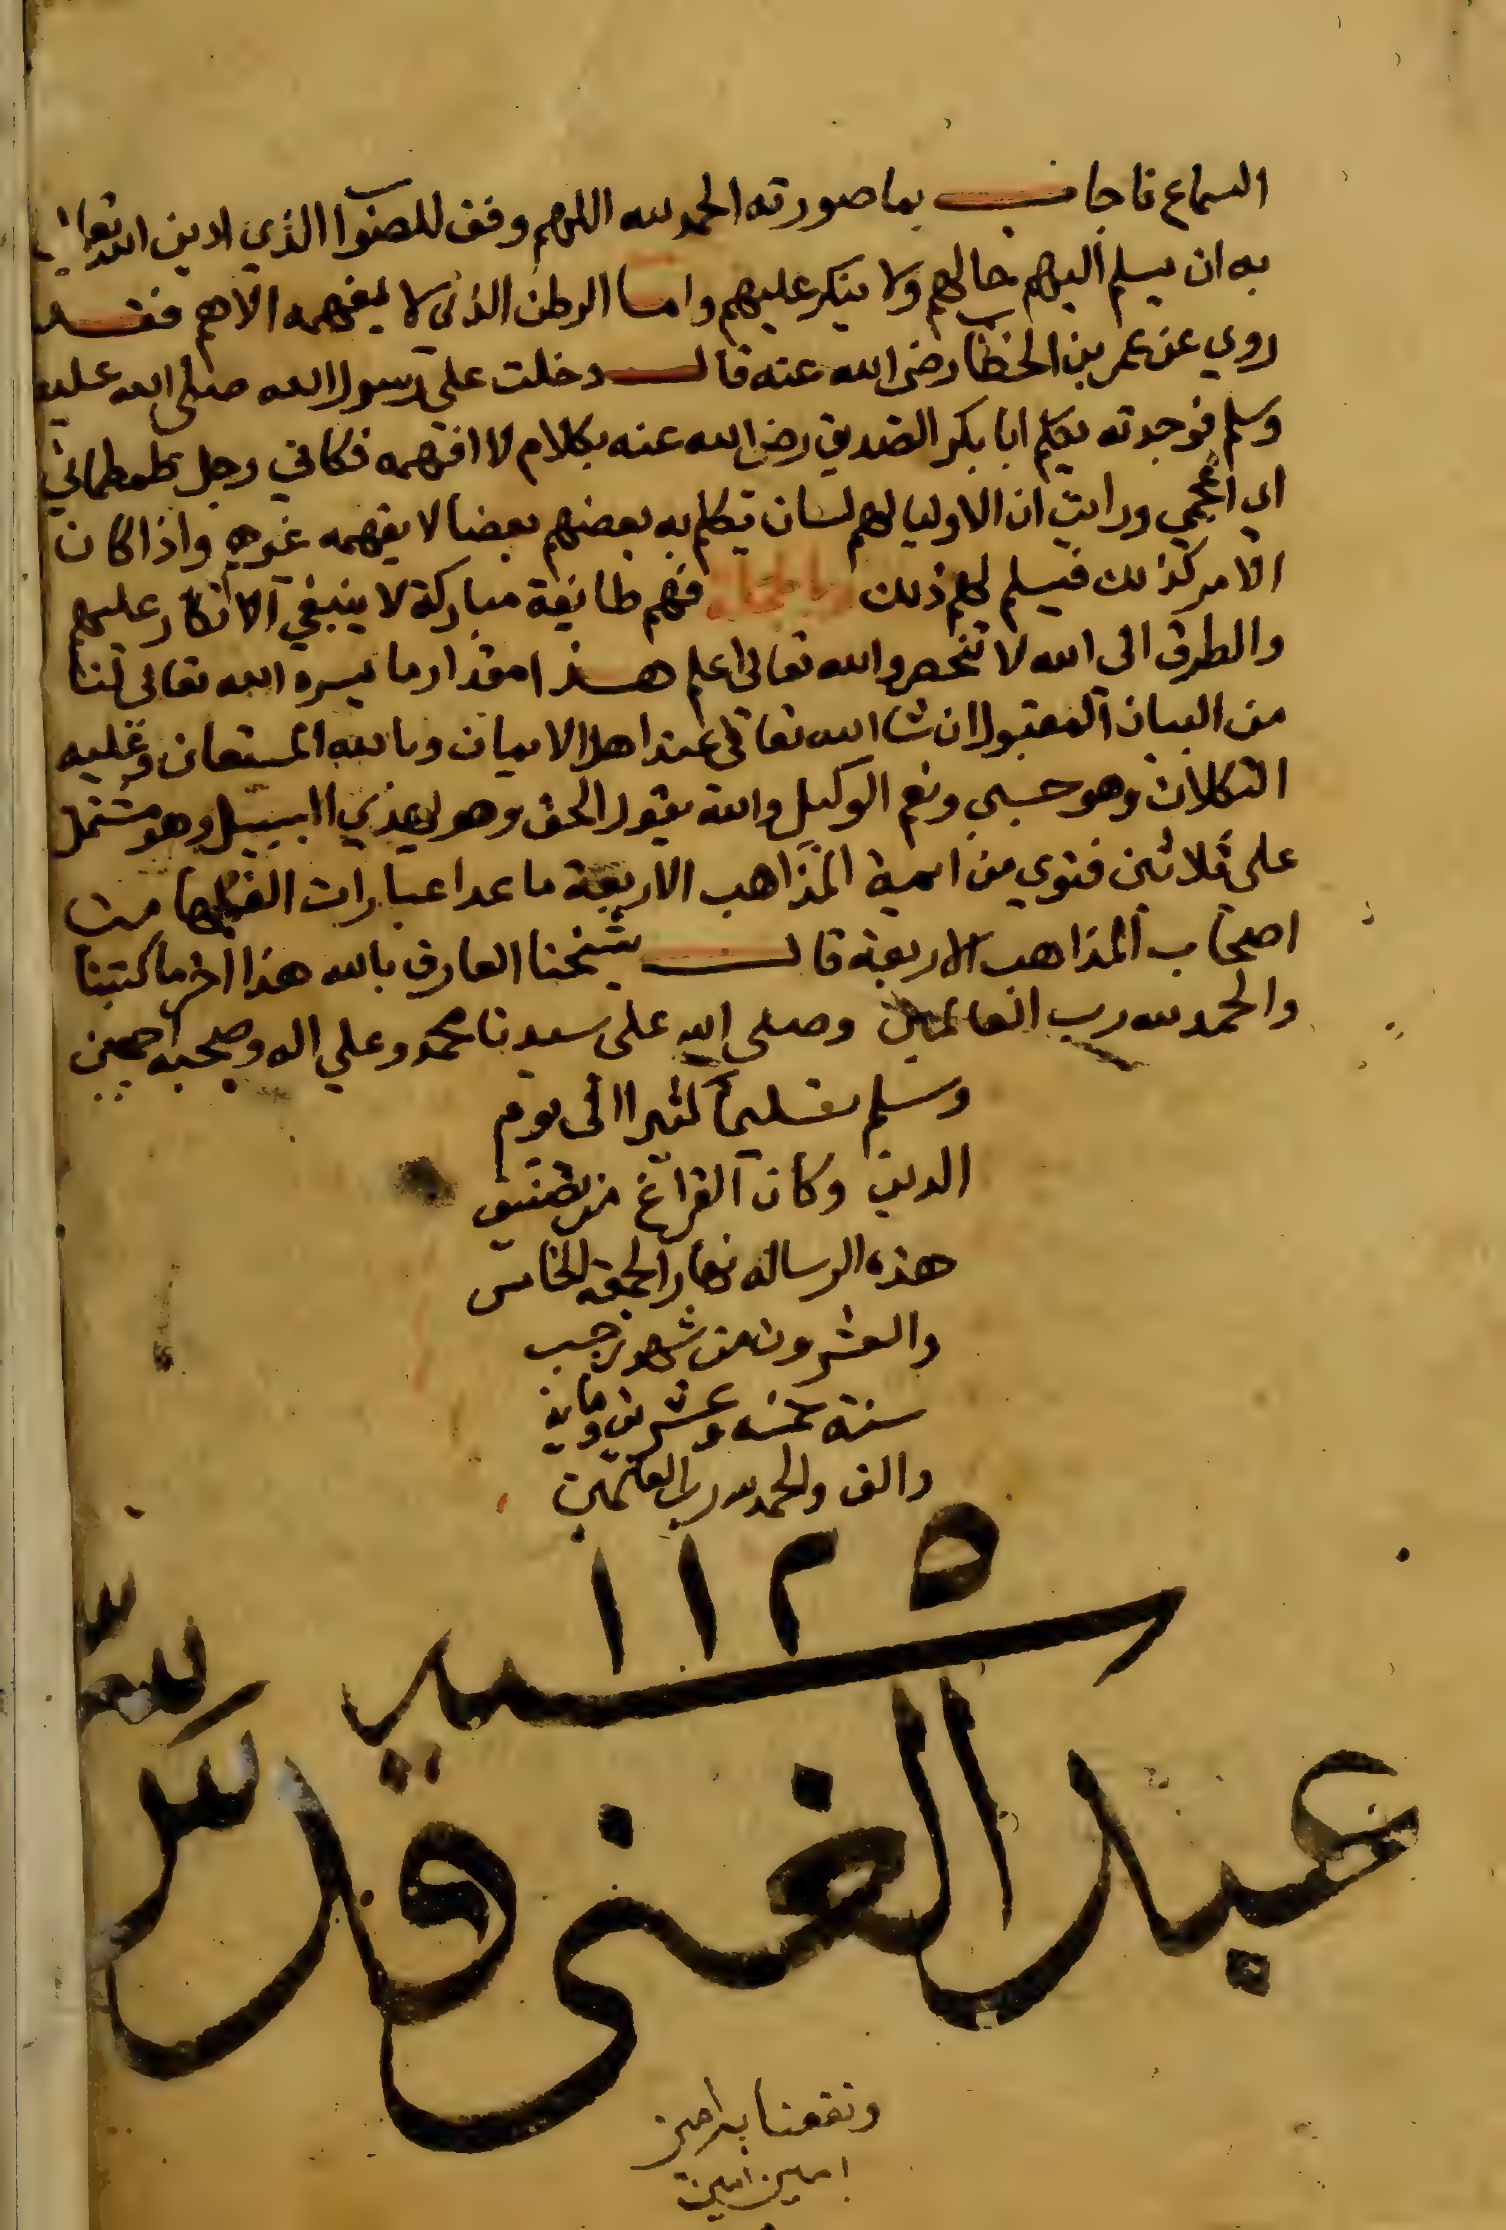 السماع فاجاب بما صورته الحمد لله اللهم وفق للصواب الذي ادين الله تعالى
به ان يسلم اليهم حالهم ولا ينكر عليهم واما الرطن الذي لا يفهمه الاهم فقد
روي عن عمر بن الخطاب رضى الله عنه قال دخلت على رسول الله صلى الله عليه
وسلم فوجدته يكلم ابا بكر الصديق رضى الله عنه بكلام لا افهمه فكاني رجل طمطماني
اي اعجمي ورايت ان الاوليا لهم لسان يتكلم به بعضهم بعضا لا يفهمه غيرهم واذا كان
الامر كذلك فيسلم لهم ذلك وبالجملة فهم طايفة مباركة لا ينبغي الانكار عليهم
والطرق الى الله لا تنحصر والله تعالى اعلم هذا مقدار ما يسره الله تعالى لنا
من البيان المقبول ان شا الله تعالى عند اهل الايمان وبالله المستعان وعليه
التكلان وهو حسبي ونعم الوكيل والله يقول الحق وهو يهدي السبيل وهو مشتمل
على ثلاثين فتوي من ايمة المذاهب الاربعة ما عدا عبارات الفقها من
اصحاب المذاهب الاربعة قال شيخنا العارف بالله هذا اخر ما كتبنا
والحمد لله رب العالمين وصلى الله على سيدنا محمد وعلي اله وصحبه اجمعين
وسلم تسليما كثيرا الى يوم
الدين وكان الفراغ من تصنيف
هذه الرساله نهار الجمعه الخامس
والعشرون من شهر رجب
سنة خمسه وعشرين وماية
والف والحمد لله رب العلمين
١١٢٥
سيدي
عبد الغنى قدس سره
ونفعنا به امين
امين امين